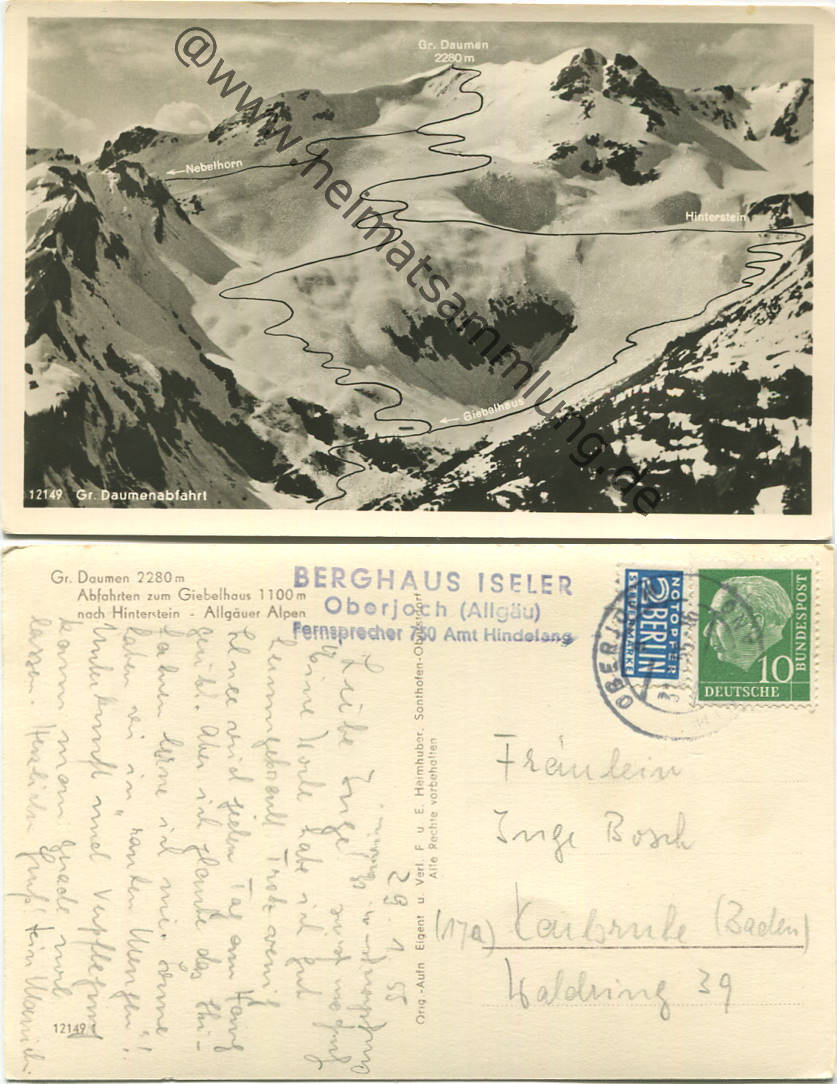 Gr. Daumen
2280 m
Nebelhorn
Hinterstein
Giebelhaus
12149 Gr. Daumenabfahrt
@www.heimatsammlung.de
Gr. Daumen 2280 m
Abfahrten zum Giebelhaus 1100 m
nach Hinterstein - Allgäuer Alpen
BERGHAUS ISELER
Oberjoch (Allgäu)
Fernsprecher 750 Amt Hindelang
NOTOPFER
2 BERLIN
STEUERMARKE
OBERJOCH
10
DEUTSCHE
BUNDESPOST
29. 1. 55
Liebe Inge!
Eine Woche habe ich gut
trotz wenig
Schnee sind jeden Tag am Hang
geübt. Aber ich glaube das Schi-
fahren lerne ich nie. Sonne
haben wir in "rauhen Mengen"!
Unterkunft und Verpflegung
kann man gerade
lassen. Herzlichen Gruß
Orig.-Aufn. Eigent. u. Verl. F. u. E. Heimhuber, Sonthofen-Oberstdorf
Alle Rechte vorbehalten
Fräulein
Inge Bosch
(17a) Karlsruhe (Baden)
Waldring 39
12149